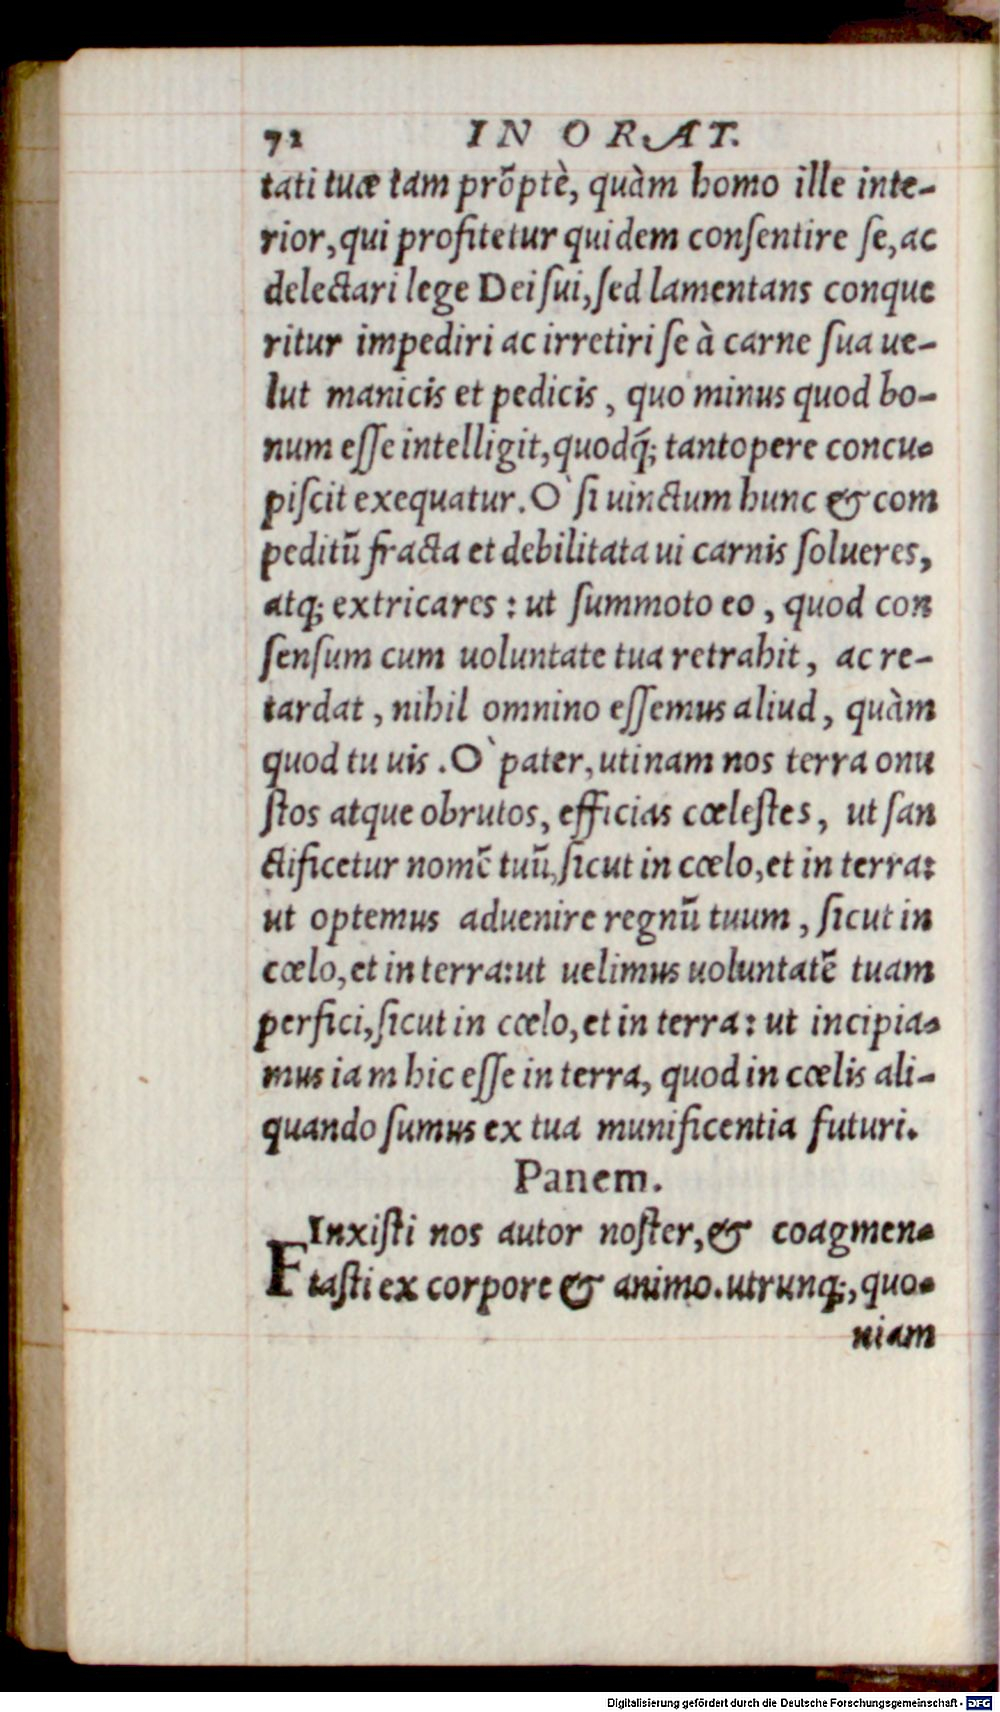 72 IN ORAT.
tati tuæ tam prõptè, quàm homo ille inte-
rior, qui profitetur quidem conſentire ſe, ac
delectari lege Dei ſui, ſed lamentans conque
ritur impediri ac irretiri ſe à carne ſua ue-
lut manicis et pedicis, quo minus quod bo-
num eſſe intelligit, quodq́; tantopere concu-
piſcit exequatur. O` ſi uinctum hunc & com
peditũ fracta et debilitata ui carnis ſolueres,
atq; extricares: ut ſummoto eo, quod con
ſenſum cum uoluntate tua retrahit, ac re-
tardat, nihil omnino eſſemus aliud, quàm
quod tu uis. O` pater, utinam nos terra onu
ſtos atque obrutos, efficias cœleſtes, ut ſan
ctificetur nomẽ tuũ, ſicut in cœlo, et in terra:
ut optemus aduenire regnũ tuum, ſicut in
cœlo, et in terra: ut uelimus uoluntatẽ tuam
perfici, ſicut in cœlo, et in terra: ut incipia-
mus iam hic eſſe in terra, quod in cœlis ali-
quando ſumus ex tua munificentia futuri.
Panem.
FInxiſti nos autor noſter, & coagmen-
taſti ex corpore & animo. utrunq;, quo-
niam
Digitalisierung gefördert durch die Deutsche Forschungsgemeinschaft - DFG